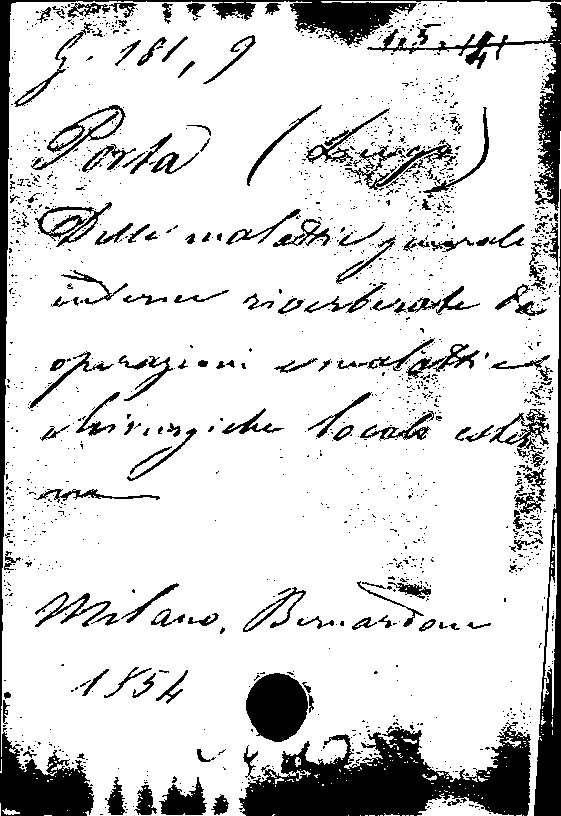 G. 181, 9
Porta (Luigi)
Delle malattie generali
interne riverberate da
operazioni e malattie
chirurgiche locali ester
ne
Milano, Bernardoni
1854